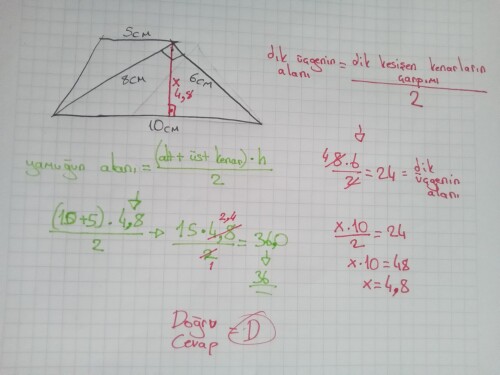 5cm
8cm
x
4,8
6cm
10cm
dik üçgenin alanı = dik kesişen kenarların çarpımı / 2
yamuğun alanı = (alt + üst kenar) . h / 2
4 8.6 / 2 = 24 = dik üçgenin alanı
(10+5) . 4,8 / 2 → 15 . 4,8 2,4 / 2 1 = 36,0
36
x.10 / 2 = 24
x.10 = 48
x = 4,8
Doğru Cevap = D